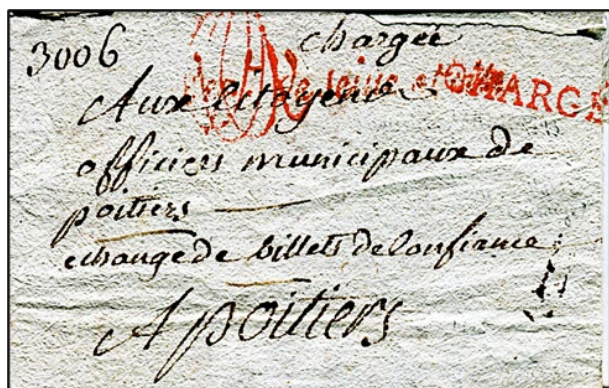 3006 chargée
de Seine et Oise CHARGÉ
Aux Citoyens
officiers municipaux de
poitiers
echange de billets de Confiance
A poitiers